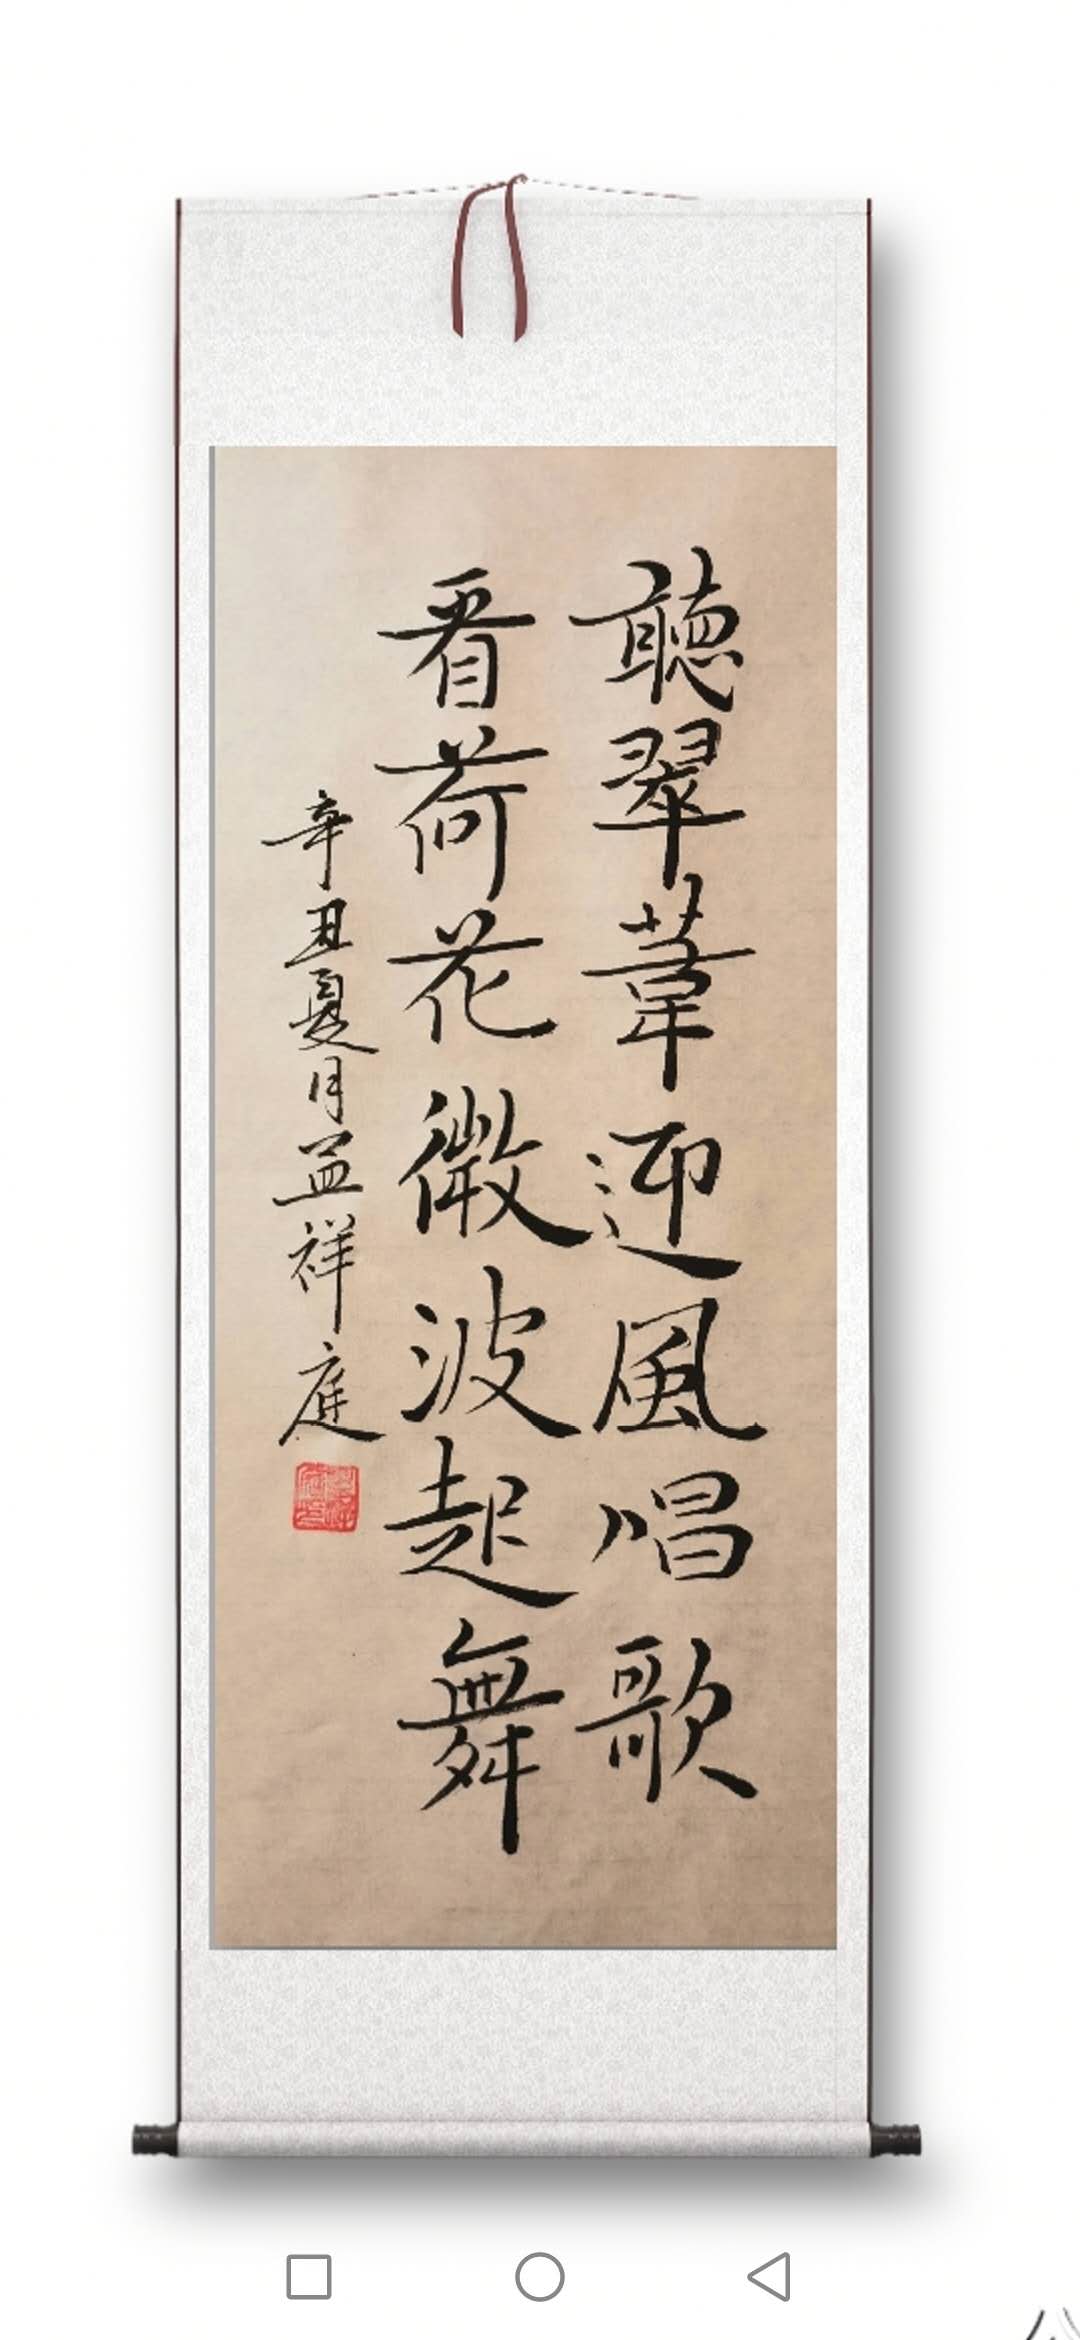 聽翠葦迎風唱歌
看荷花微波起舞
辛丑夏月益祥庭